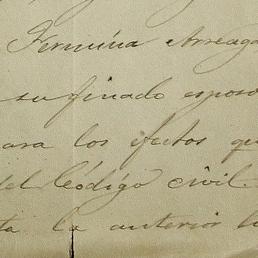 Fermina Arreaga
su finado esposo
ara los efectos qu
del Código civil.
ta la anterior